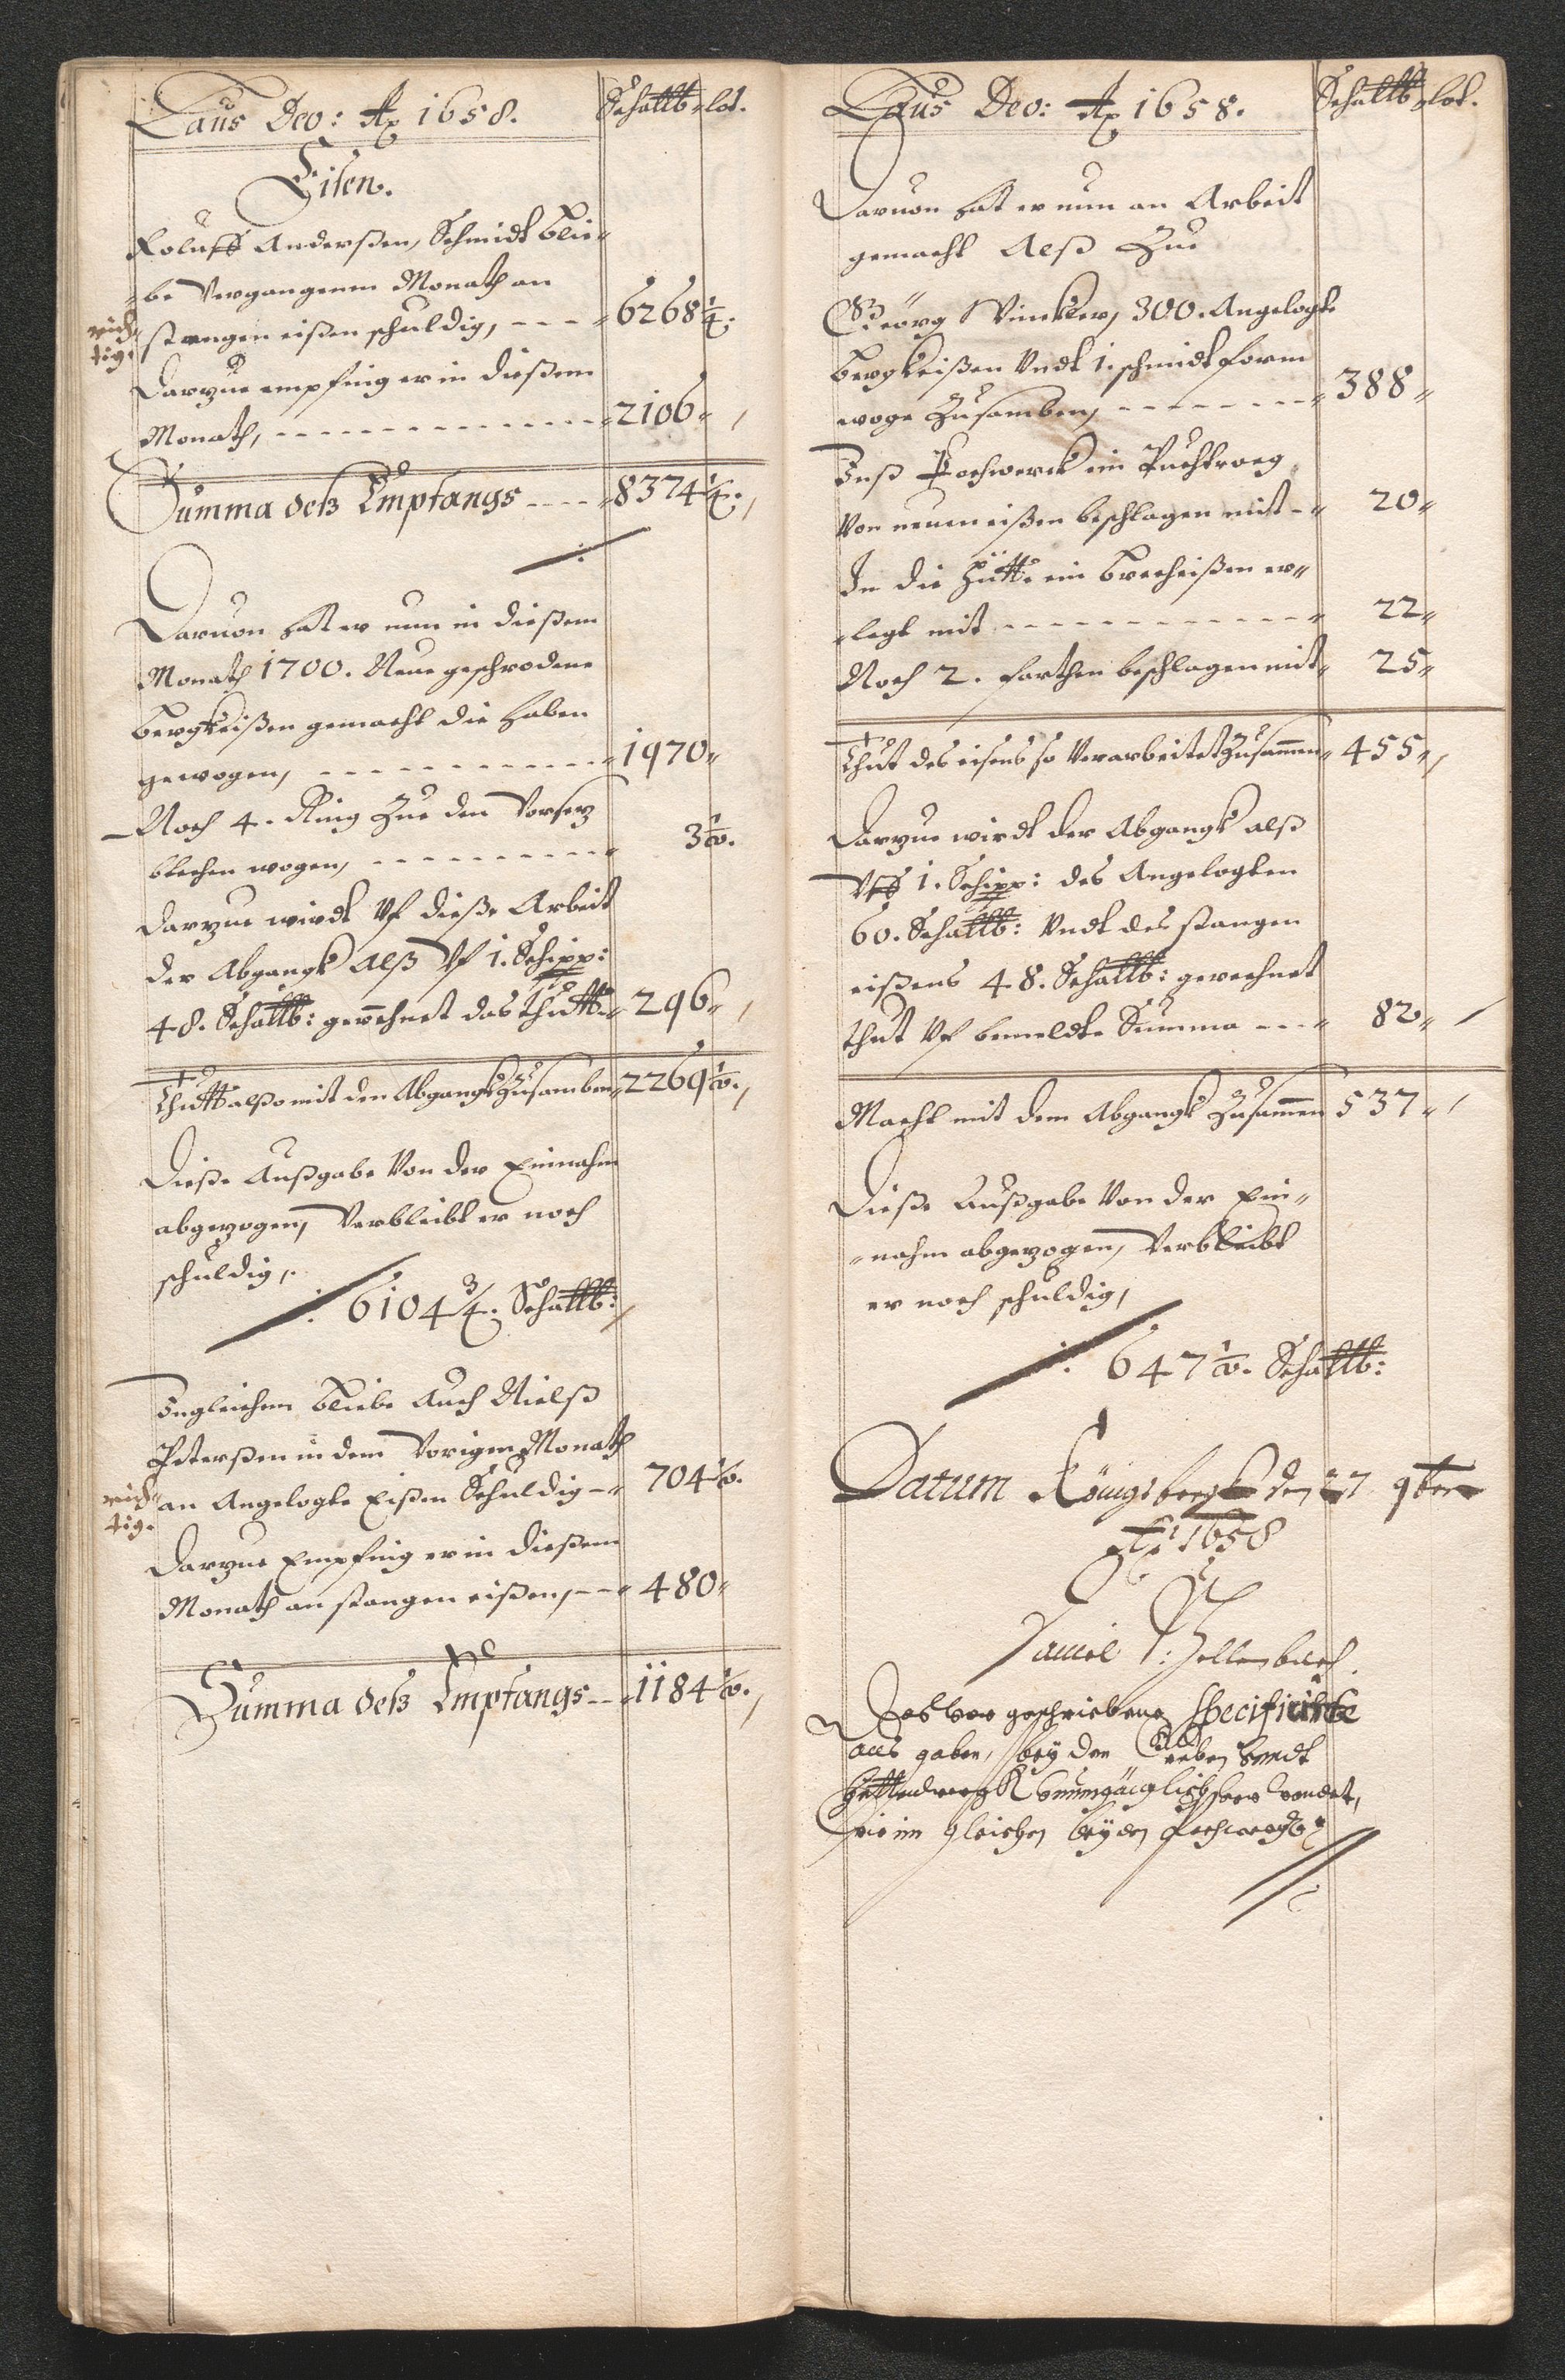 Laus Deo: Aō 1658. Schāllb lot.
Eisen.
Roluff Anderßen, Schmidt blie-
be Vergangenen Monath an
rich-
tig.
stangen eißen schuldig, 6268 1/4.
Darzue empfing er in dießem
Monath, 2106
Summa deß Empfangs 8374 1/4.
Daruon hat er nun in dießem
Monath 1700. Neue geschrodene
bergkeißen gemacht die haben
gewogen, 1970
Noch 4. Ring Zue den Vorsetz
blechen wogen, 3 1/2.
Darzue wirdt Vf dieße Arbeit
der Abgangk Alß Vf 1. Schipp:
48. Schāllb: gerechnet das thutt 296
Thutt alßo mit den Abgangk Zusamben 2269 1/2.
Dieße Außgabe Von der Einnahm
abgezogen, Verbleibt er noch
schuldig,
6104 3/4. Schāllb:
Ingleichen bliebe Auch Nielß
Peterßen in dem Vorigen Monath
rich-
tig.
an Angelogte Eißen Schuldig 704 1/2.
Darzue Empfing er in dießem
Monath an stangen eißen, 480
Summa deß Empfangs 1184 1/2.
Laus Deo: Aō 1658. Schāllb lot.
Daruon hat er nun an Arbeit
gemacht Alß Zue
Georg Winckler, 300. Angelogte
bergkeißen Vndt 1. schmidt form
woge Zusamben, 388
Inß Pochwerck ein Puchtroeg
Von neuen eißen beschlagen mit 20
In die Hütte ein brecheißen er-
legt mit 22
Noch 2. karthen beschlagen mit 25
Thut des eisens so Verarbeitet Zusam̄en 455
Darzue wirdt der Abgangk alß
Vff 1. Schipp: des Angelogten
60. Schāllb: Vndt des stangen
eißens 48. Schāllb: gerechnet
thut Vf bemeldte Summa 82
Macht mit dem Abgangk Zusam̄en 537
Dieße Außgabe Von der Ein-
nahm abgezogen, Verbleibt
er noch schuldig,
647 1/2. Schāllb:
Datum Königsbergk den 27 9ber
Aō 1658
Das vor geschriebene Specificirte
aus gaben, bey den